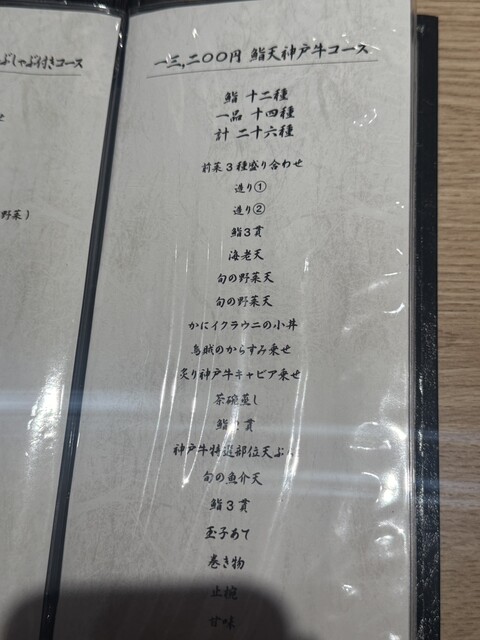 ぶしゃぶ付きコース
野菜）
一三,二〇〇円 鮨天神戸牛コース
鮨 十二種
一品 十四種
計 二十六種
前菜３種盛り合わせ
造り①
造り②
鮨３貫
海老天
旬の野菜天
旬の野菜天
かにイクラウニの小丼
烏賊のからすみ乗せ
炙り神戸牛キャビア乗せ
茶碗蒸し
鮨 貫
神戸牛特選部位天ぷ
旬の魚介天
鮨３貫
玉子あて
巻き物
止椀
甘味